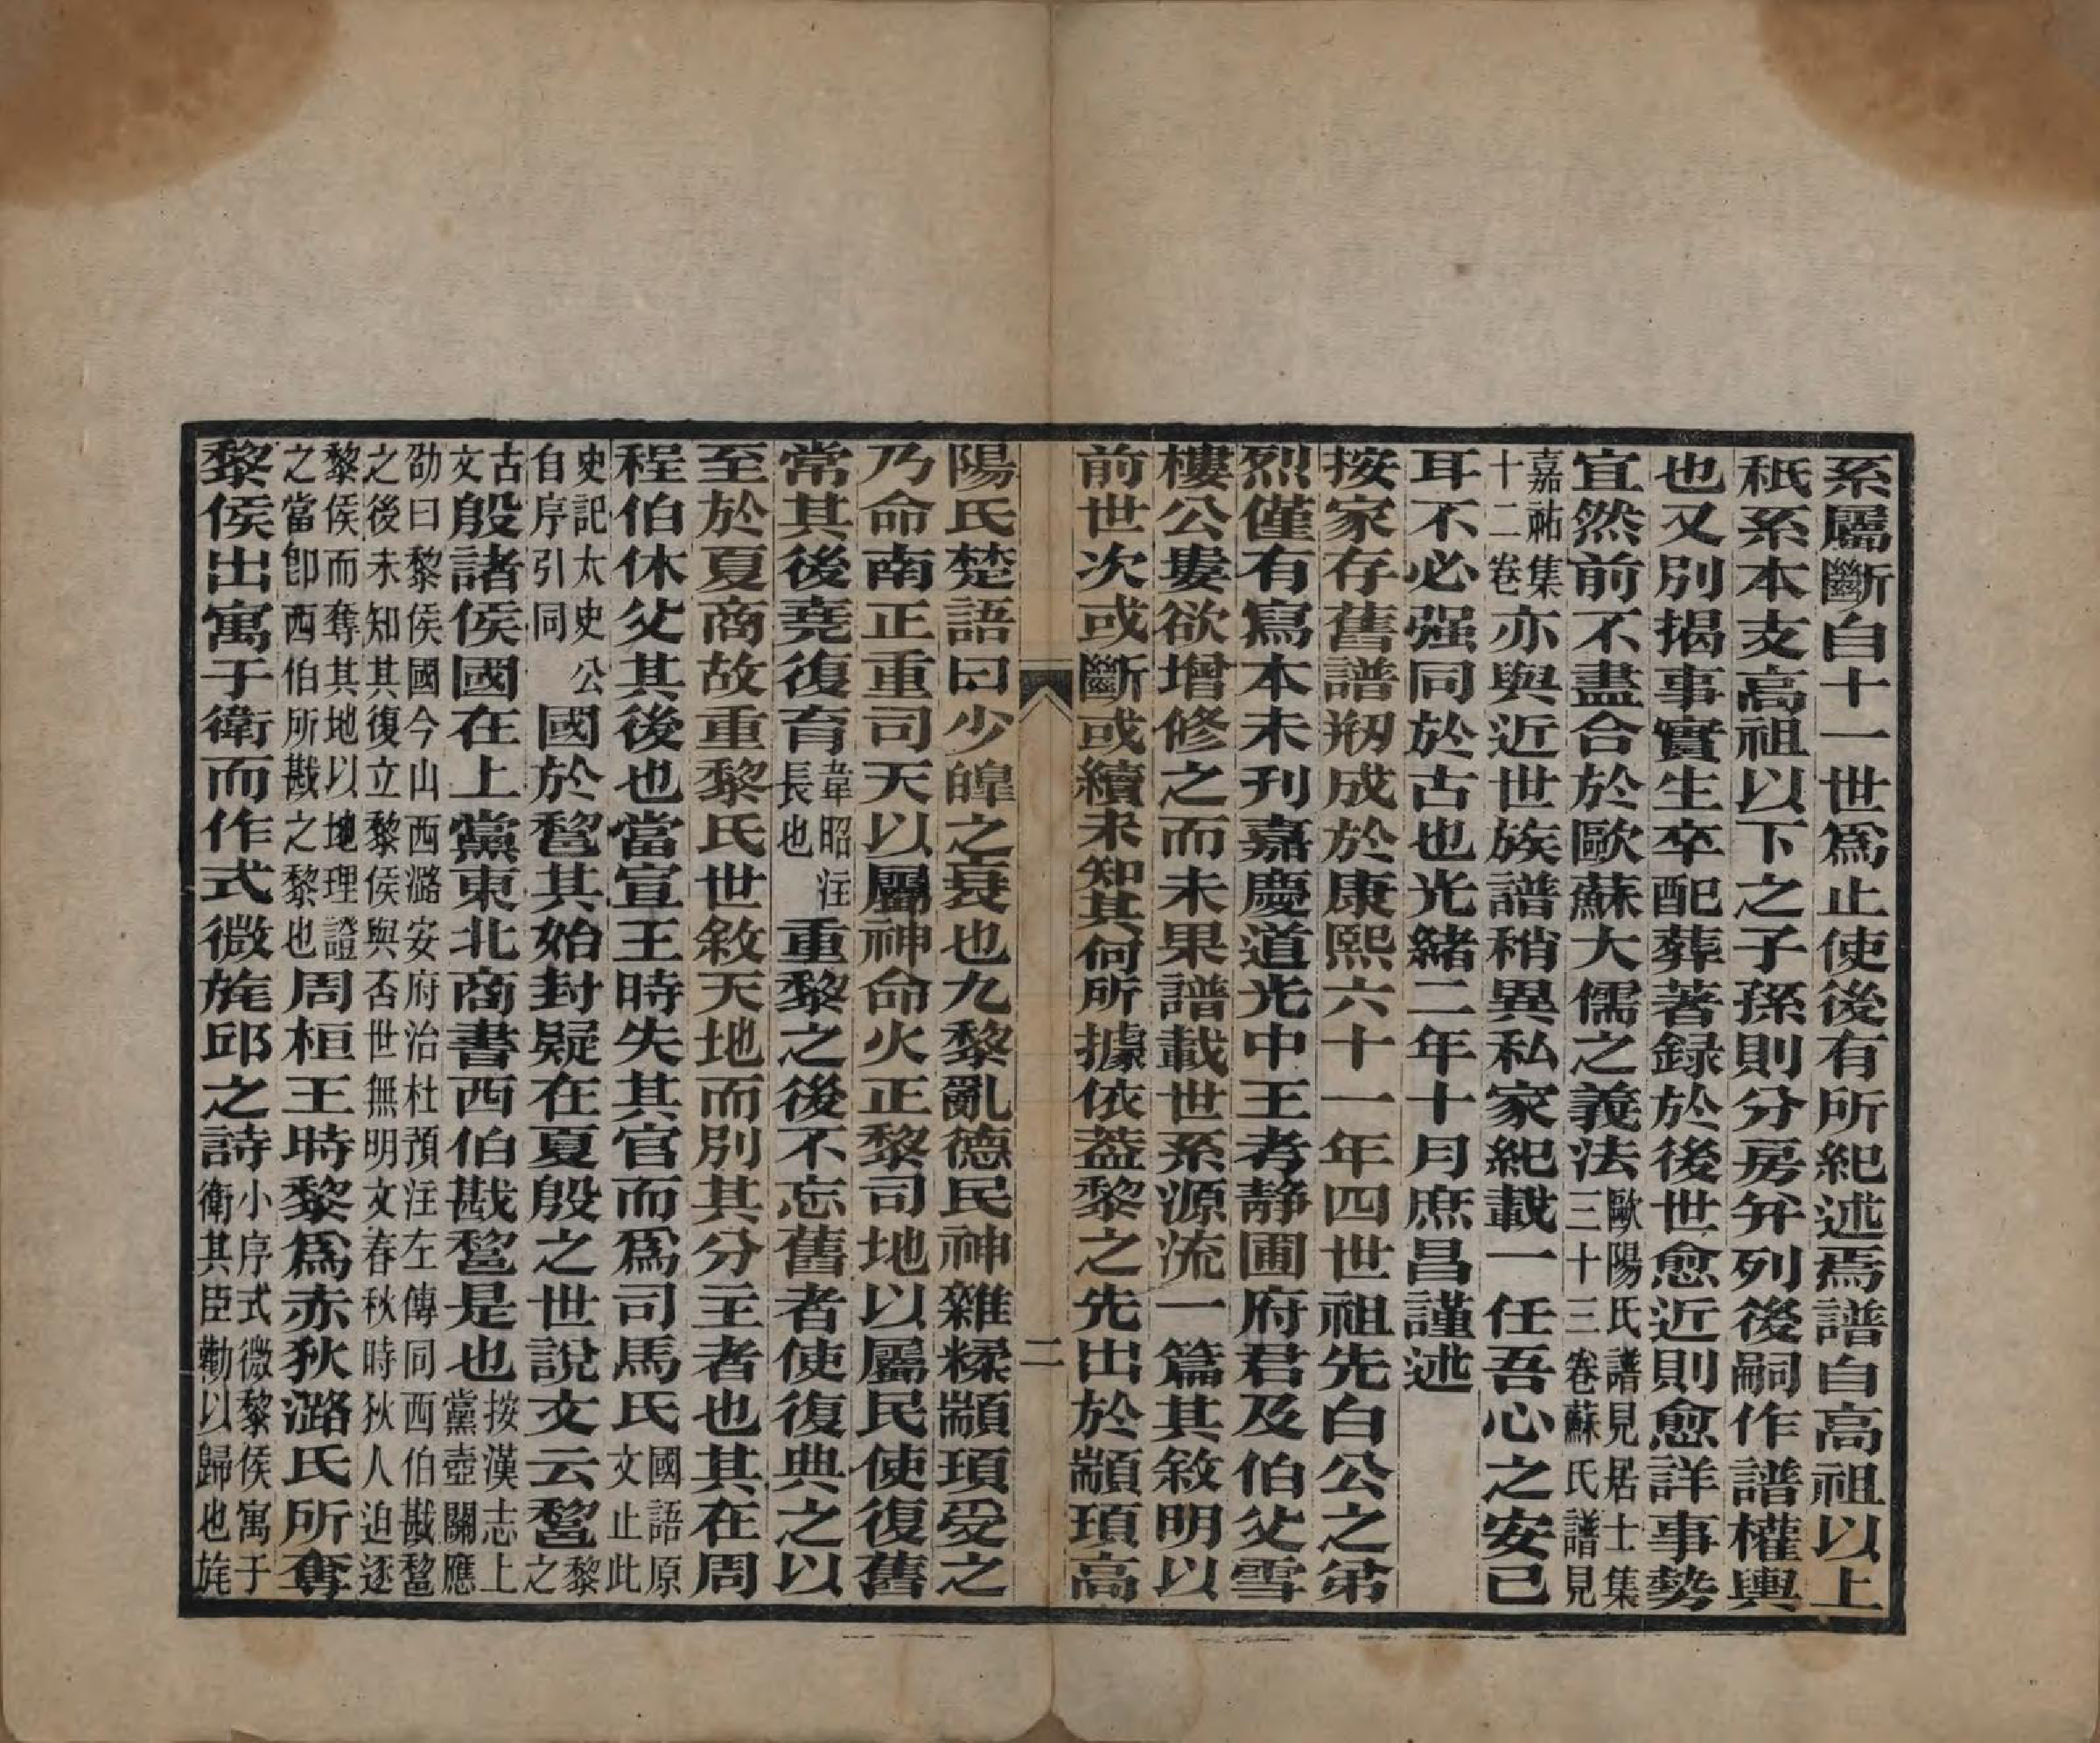 系屬斷自十一世爲止使後有所紀述焉譜自高祖以上
秖系本支高祖以下之子孫則分房幷列後嗣作譜權輿
也又別揭事實生卒配葬著録於後世愈近則愈詳事勢
宜然前不盡合於歐蘇大儒之義法歐陽氏譜見居士集三十三卷蘇氏譜見
嘉祐集十二卷亦與近世族譜稍異私家紀載一任吾心之安已
耳不必强同於古也光緒二年十月庶昌謹述
按家存舊譜剏成於康熙六十一年四世祖先白公之第
烈僅有寫本未刊嘉慶道光中王考靜圃府君及伯父雪
樓公婁欲增修之而未果譜載世系源流一篇其敘明以
前世次或斷或續未知其何所據依葢黎之先出於顓頊高
二
陽氏楚語曰少皥之衰也九黎亂德民神雜糅顓頊受之
乃命南正重司天以屬神命火正黎司地以屬民使復舊
常其後堯復育韋昭注長也重黎之後不忘舊者使復典之以
至於夏商故重黎氏世敘天地而別其分主者也其在周
程伯休父其後也當宣王時失其官而爲司馬氏國語原文止此
史記太史公自序引同國於𨛫其始封疑在夏殷之世說文云𨛫黎之
古文殷諸侯國在上黨東北商書西伯戡𨛫是也按漢志上黨壺關應
劭曰黎侯國今山西潞安府治杜預注左傳同西伯戡𨛫之後未知其復立黎侯與否世無明文春秋時狄人迫逐
黎侯而奪其地以地理證之當卽西伯所戡之黎也周桓王時黎爲赤狄潞氏所奪
黎侯出寓于衛而作式微旄邱之詩小序式微黎侯寓于衛其臣勸以歸也旄